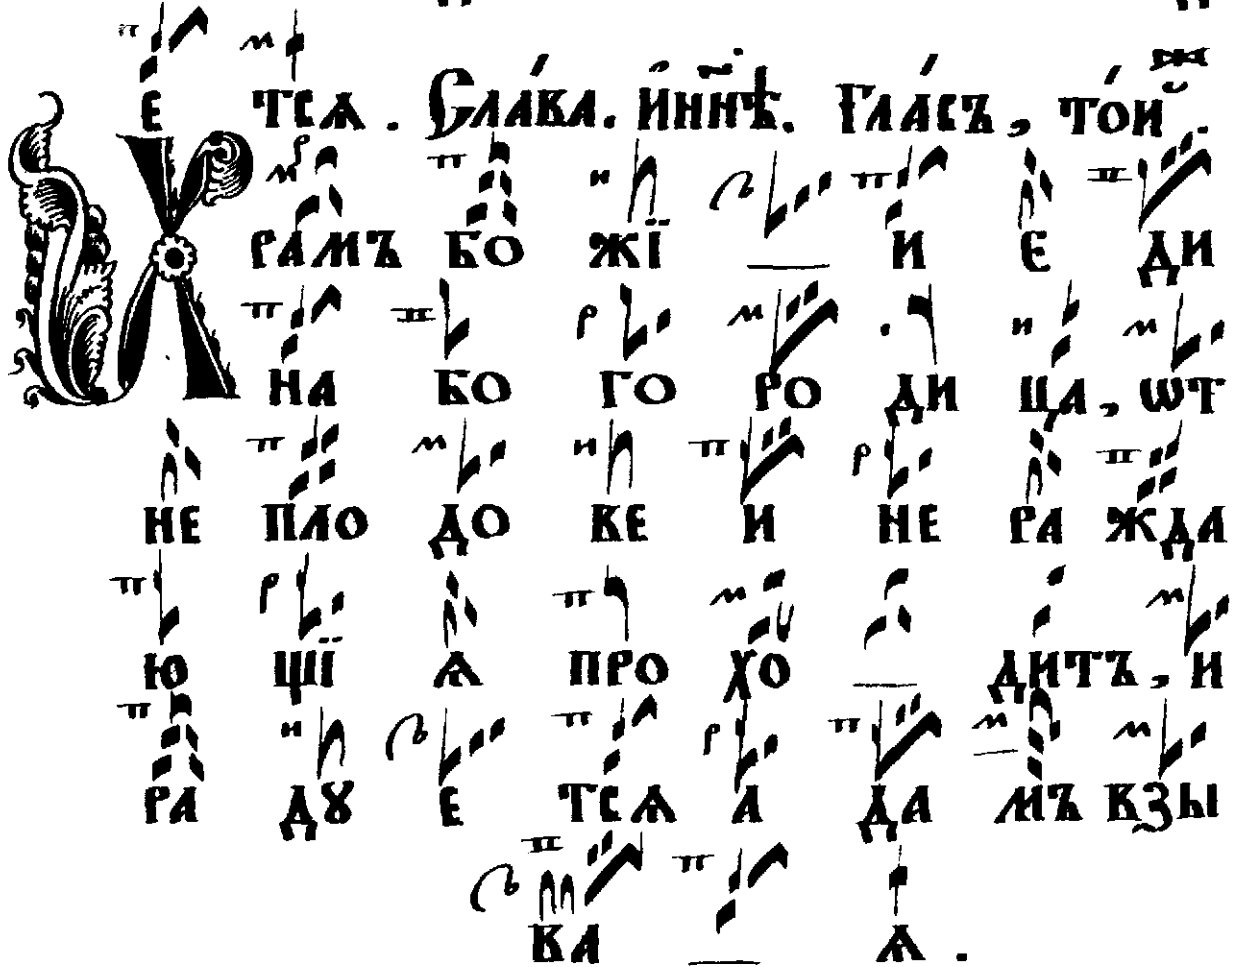 е тсѧ. Сла́ва. и҆ нн҃ѣ. Гла́съ, то́й
Храмъ бо жї и е ди
на бо го ро ди ца, ѿ
не пло до ве и не ра жда
ю щїѧ про хо дитъ, и
ра дꙋ е тсѧ а да мъ взы
ва ѧ.